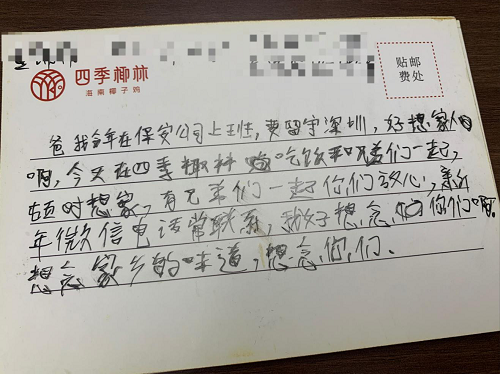 四季椰林
海南椰子鸡
贴邮
费处
爸我今年在保安公司上班,要留守深圳,好想家人
啊,今天在四季椰林吃饭和兄弟们一起,
顿时想家,有兄弟们一起你们放心,新
年微信电话常联系,我好想念你们啊。
想念家乡的味道,想念你们.